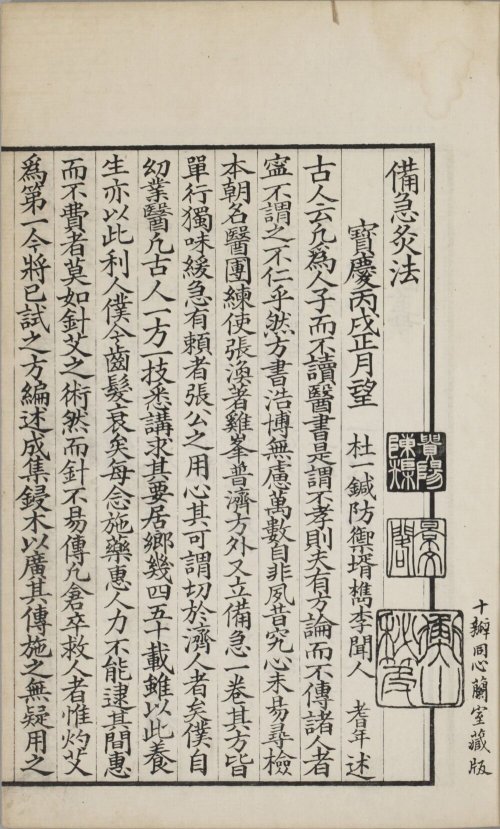 備急灸法
寶慶丙戌正月望　杜一鍼防禦壻檇李聞人　耆年　述
古人云凡為人子而不讀醫書是謂不孝則夫有方論而不傳諸人者
寧不謂之不仁乎然方書浩博無慮萬數自非夙昔究心未易尋檢
本朝名醫團練使張渙著雞峯普濟方外又立備急一卷其方皆
單行獨味緩急有賴者張公之用心其可謂切於濟人者矣僕自
幼業醫凡古人一方一技悉講求其要居鄉幾四五十載雖以此養
生亦以此利人僕今齒髮衰矣每念施藥惠人力不能逮其間惠
而不費者莫如針艾之術然而針不易傳凡倉卒救人者惟灼艾
為第一今將已試之方編述成集鋟木以廣其傳施之無疑用之
貴陽陳榘
景文閣
十瓣同心蘭室藏版